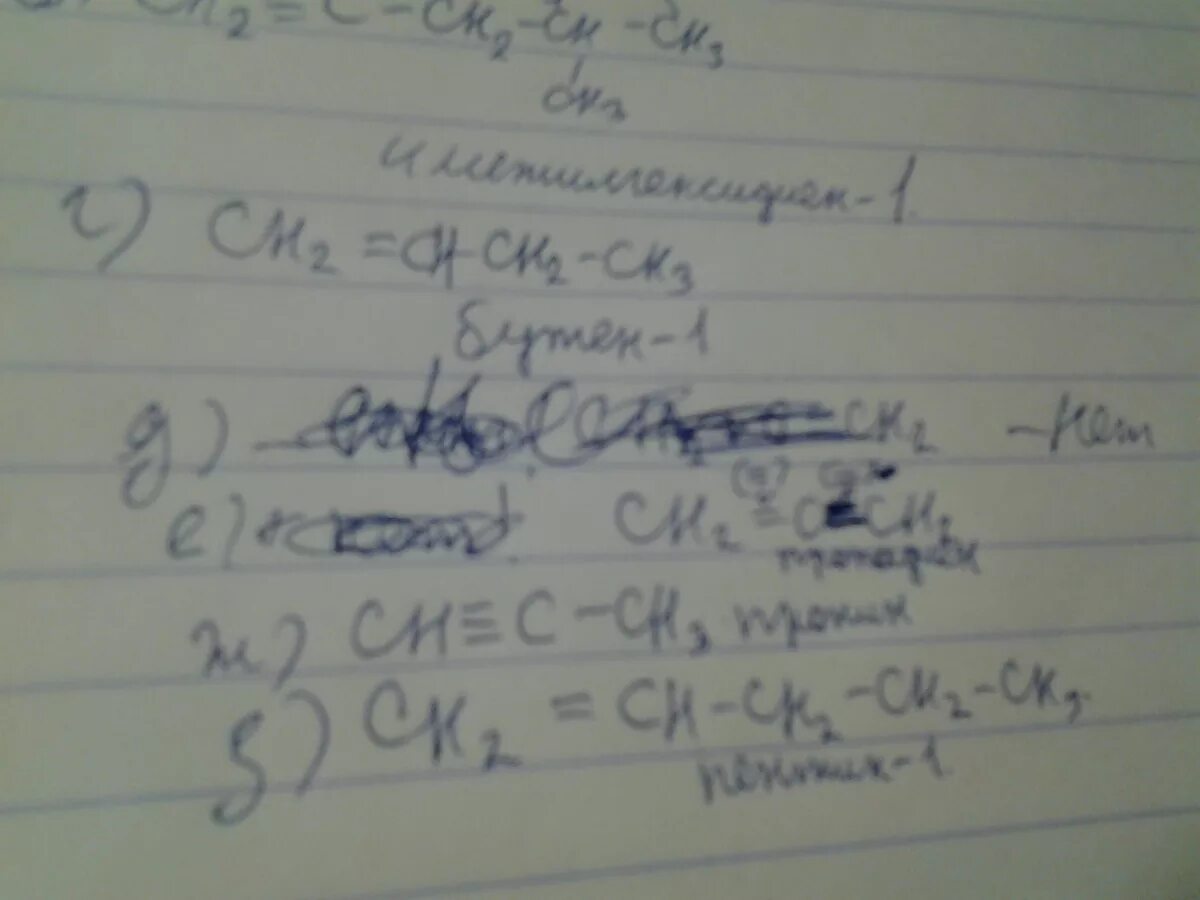 CH₂ = C - CH₂ - CH - CH₃
CH₃
4 метилгексидиен-1
г) CH₂ = CH - CH₂ - CH₃
бутен-1
д) CH₂ - Нет
е) CH₂ = C = CH₂
пропадиен
ж) CH ≡ C - CH₃ пропин
з) CH₂ = CH - CH₂ - CH₂ - CH₃
пентин-1